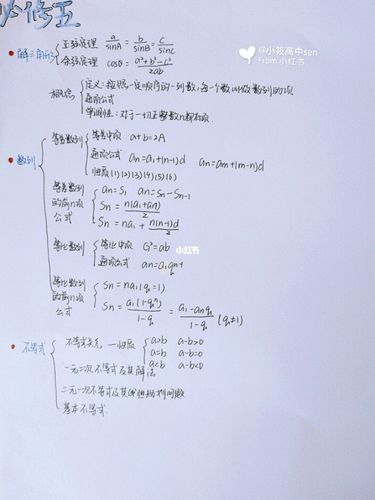 必修五
@小筱高中sen
From 小红书
解三角形
正弦定理 a/sinA = b/sinB = c/sinC
余弦定理 cosθ = a²+b²-c²/2ab
数列
概念
定义：按照一定顺序的一列数，每一个数叫做数列的项
通项公式
单调性：对于一切正整数n都有项
等差数列
等差中项 a+b=2A
通项公式 an=a1+(n-1)d an=am+(m-n)d
归质(1)(2)(3)(4)(5)(6)
等差数列的前n项公式
an=S1 an=Sn-Sn-1
Sn=n(a1+an)/2
Sn=na1+n(n-1)d/2
等比数列
等比中项 G²=ab
通项公式 an=a1qn-1
小红书
等比数列的前n项公式
Sn=na1(q=1)
Sn=a1(1-qn)/1-q = a1-anq/1-q (q≠1)
不等式
不等式关系，一归质
a>b a-b>0
a=b a-b=0
a<b a-b<0
一元二次不等式及其解法
二元一次不等式及其
问题
基本不等式